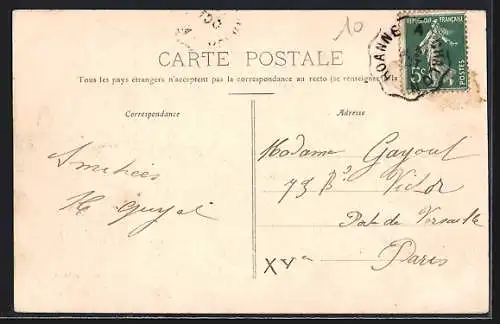 10
ROANNE
RÉPUBLIQUE FRANÇAISE
5c
POSTES
CARTE POSTALE
Tous les pays étrangers n'acceptent pas la correspondance au recto (se renseigner à la
Correspondance
Adresse
Amitiées
Madame Gayout
73 Bd Victor
Pte de Versaille
Paris
XVe